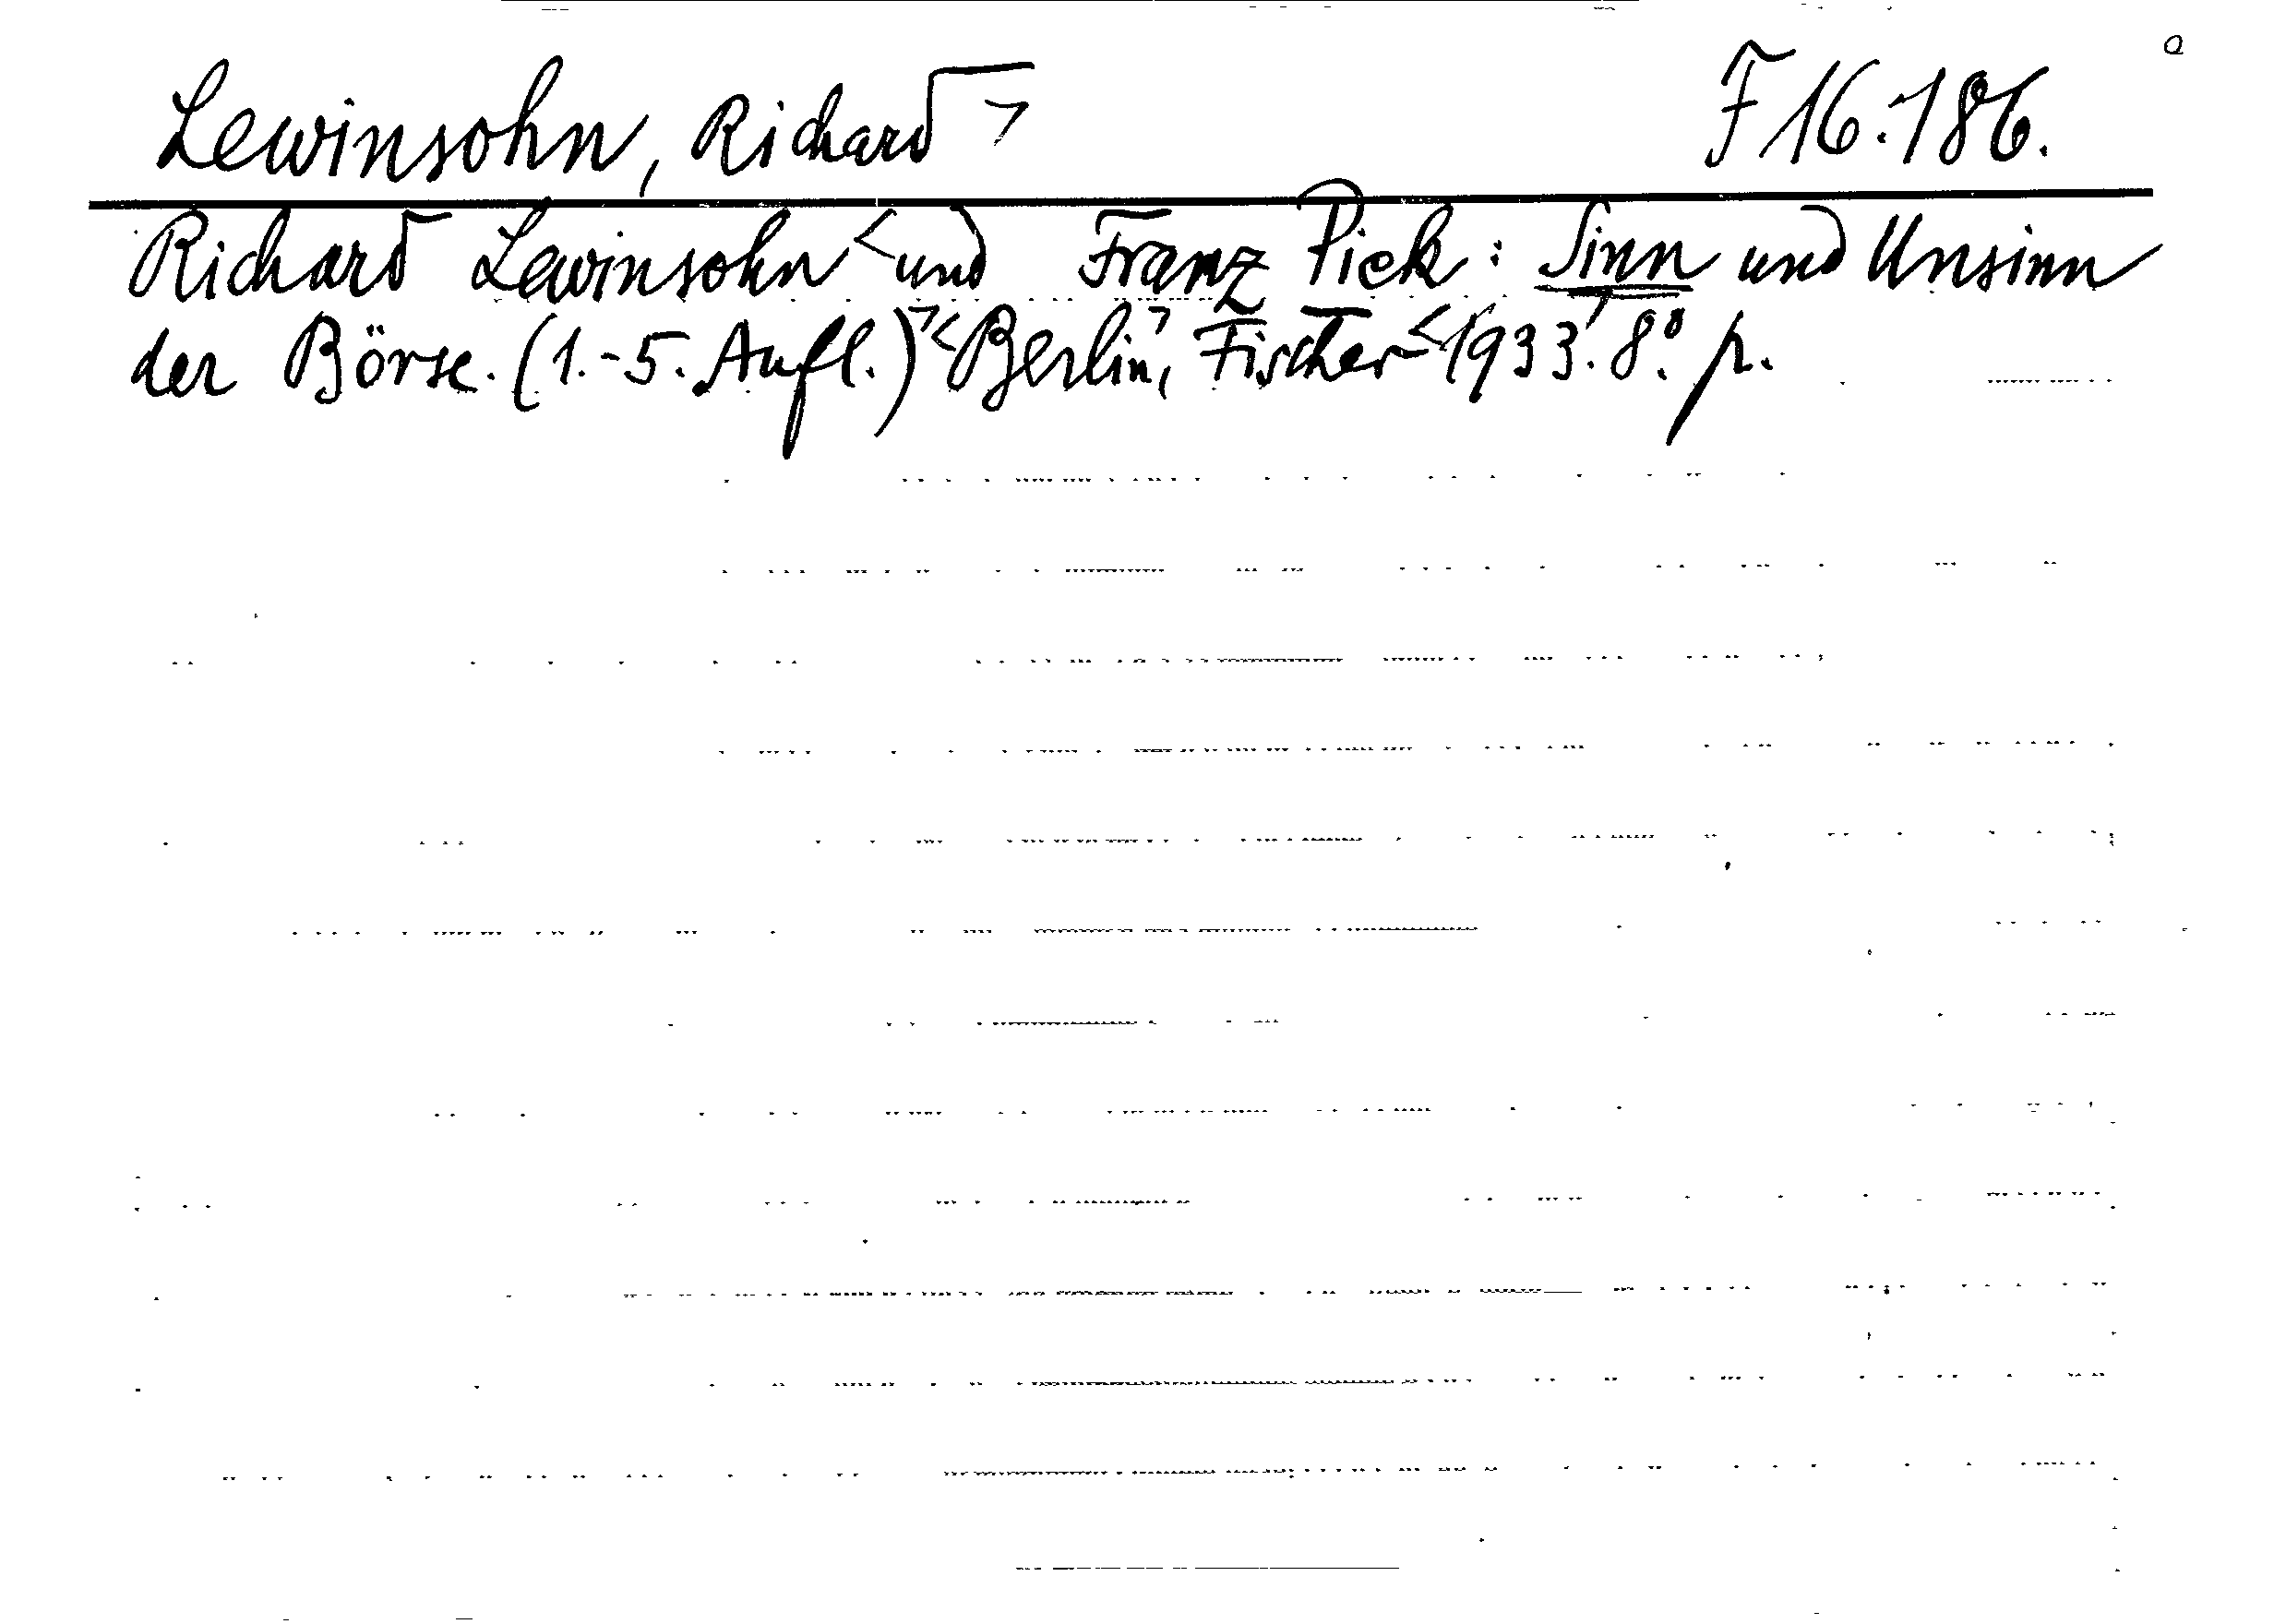 Lewinsohn, Richard > F 16.186.
Richard Lewinsohn < und Franz Pick: Sinn und Unsinn
der Börse. (1.-5. Aufl.) > < Berlin, > Fischer < 1933. 8º. p.